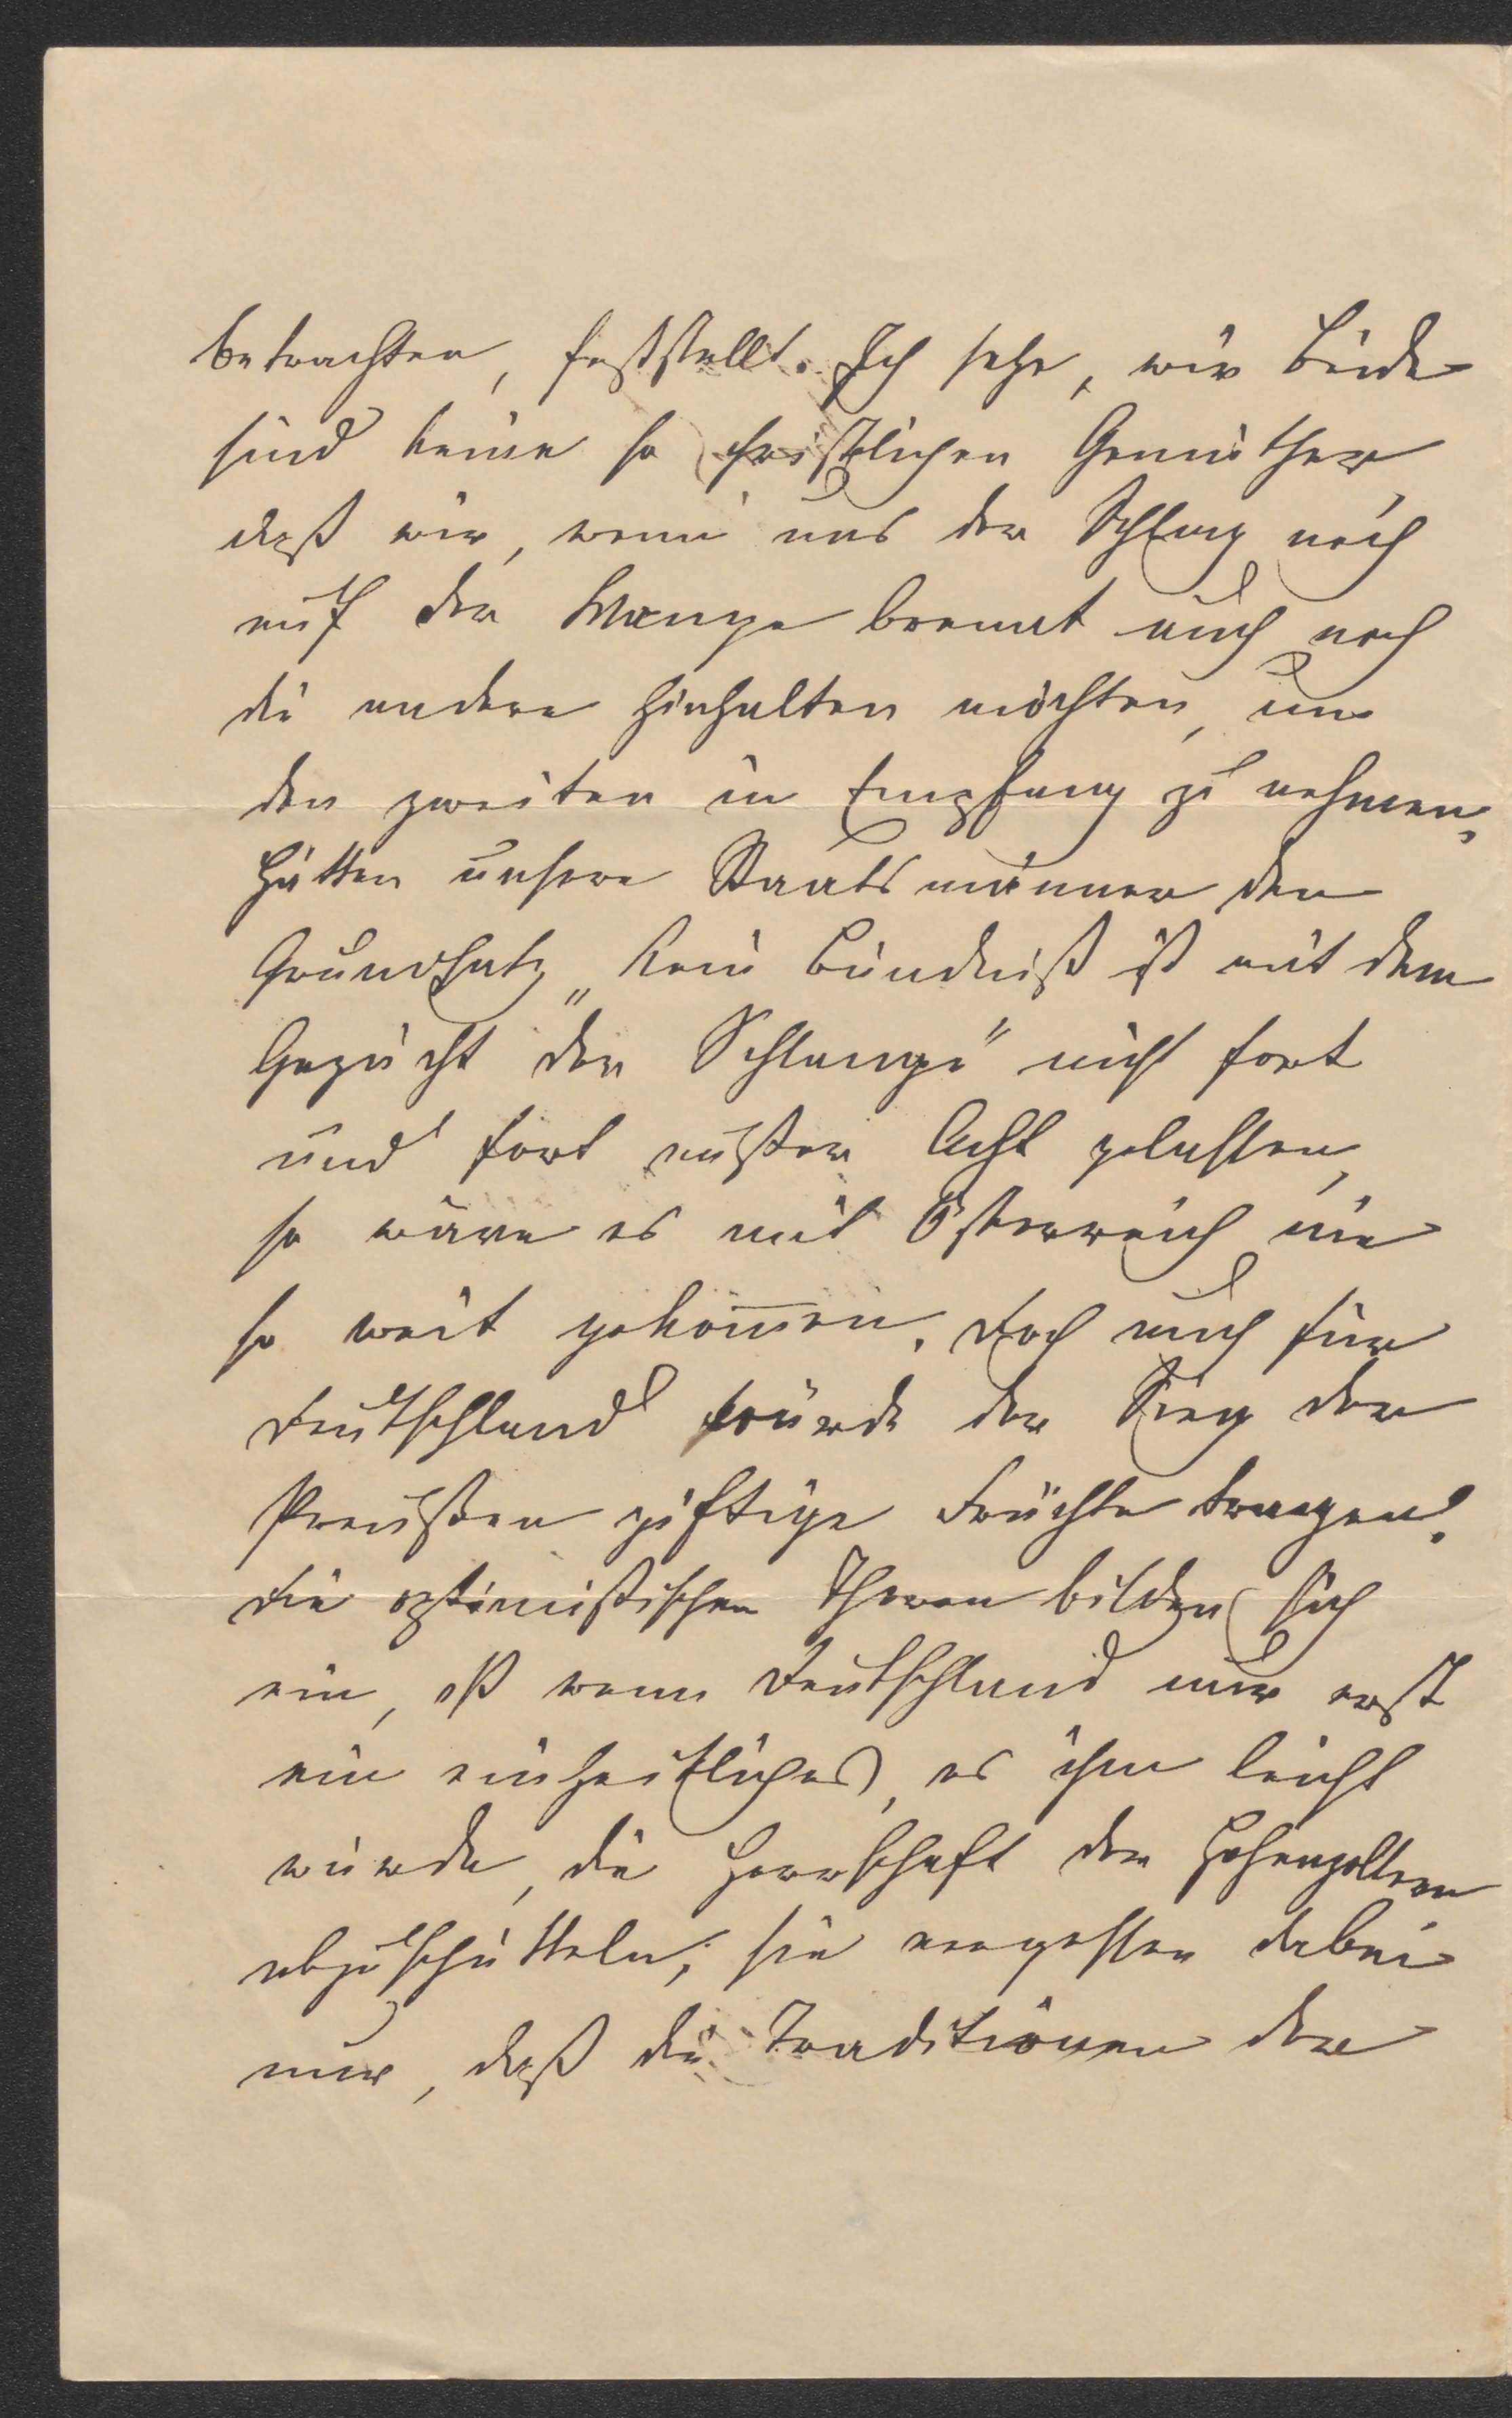 betrachten, feststellt. Ich sehe, wir Beide
sind keine so christlichen Gemüther,
daß wir, wenn uns der Schlag noch
auf der Wange brennt auch noch
die andere hinhalten möchten, um
den zweiten in Empfang zu nehmen.
Hätten unsere Staatsmänner den
Grundsatz „Kein Bündniß ist mit dem
Gezücht der Schlange" nicht fort
und fort außer Acht gelassen,
so wäre es mit Österreich nie
so weit gekom̅en. Doch auch für
Deutschland würde der Sieg der
Preußen giftige Früchte tragen.
Die optimistischen Thoren bilden sich
ein, daß wenn Deutschland nur erst
ein einheitliches, es ihm leicht
würde, die Herrschaft der Hohenzollern
abzuschütteln; sie vergessen dabei
nur, daß die Traditionen der